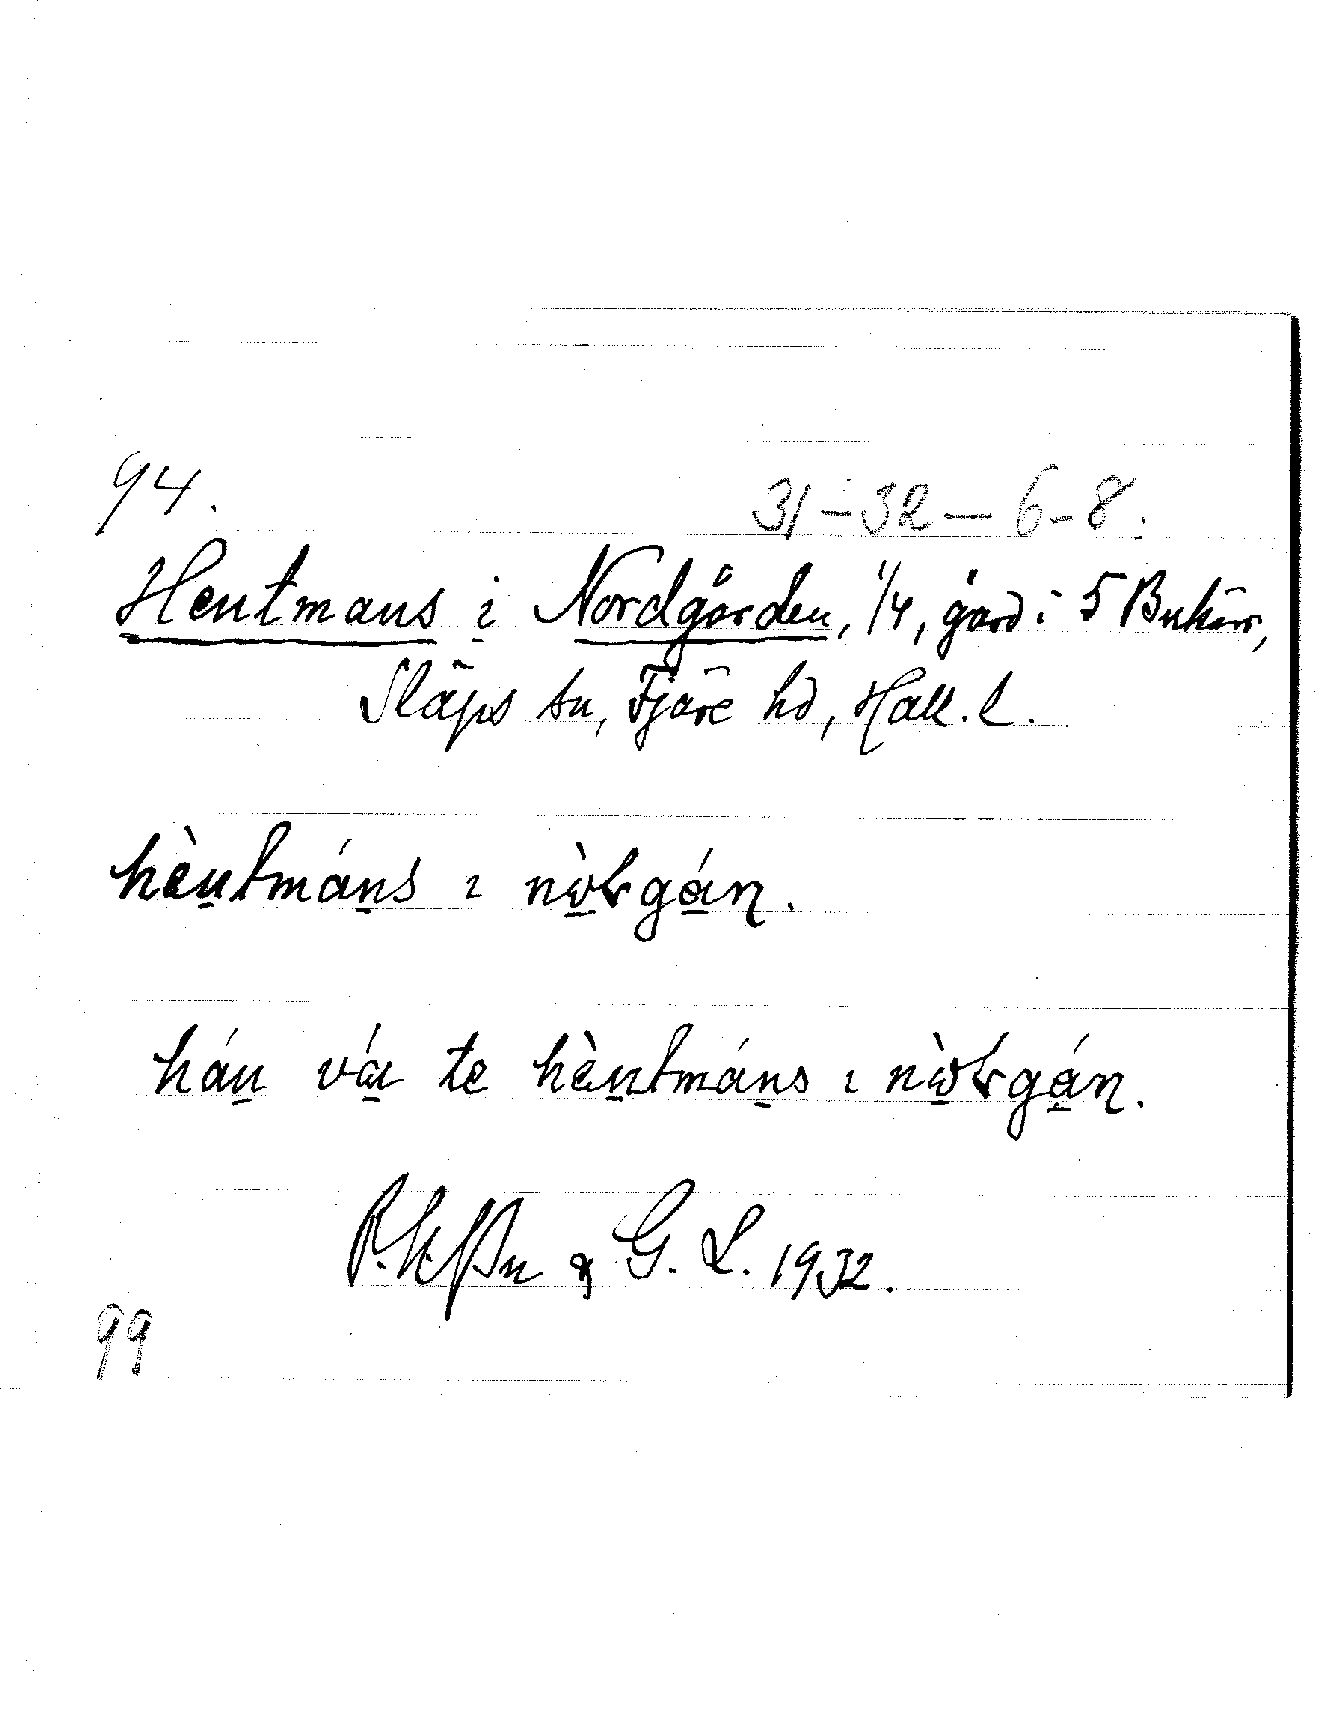 94.
31-32-6-8.
Hentmans i Nordgården, 1/4, gård i 5 Bukärr,
Släps sn, Fjäre hd, Hall. l.
hèn̲tmán̲s ı nò̲rgá̲n̡.
hán̲ vá̲ te hèn̲tmán̲s ı nò̲rgá̲n̡.
& G. L. 1932.
99